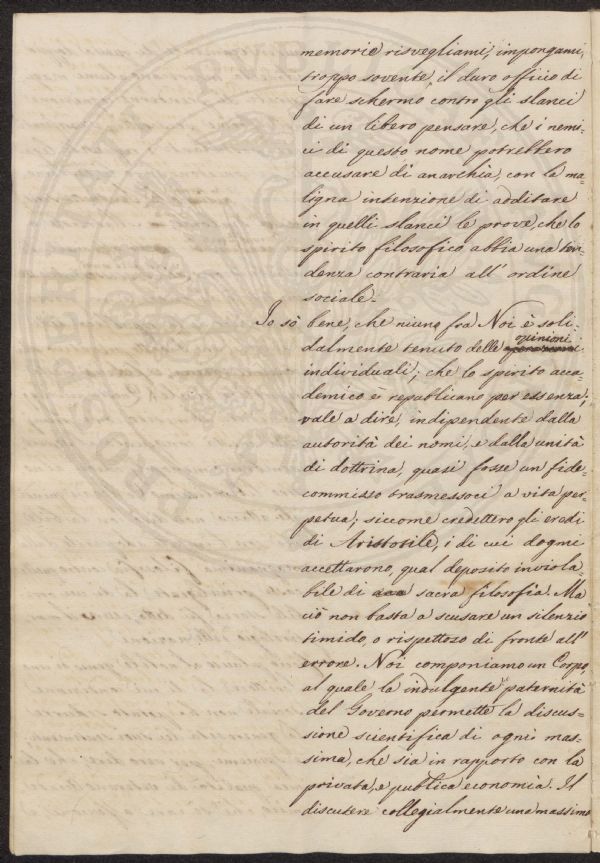 memorie risvegliami, impongami,
troppo sovente, il duro officio di
fare schermo contro gli slanci
di un libero pensare, che i nemi-
ci di questo nome potrebbero
accusare di anarchia, con la ma-
ligna intenzione di additare
in quelli slanci le prove, che lo
spirito filosofico abbia una ten-
denza contraria all'ordine
sociale.
Io sò bene, che niuno fra Noi è soli-
dalmente tenuto delle opinioni
individuali; che lo spirito acca-
demico è republicano per essenza;
vale a dire, indipendente dalla
autorità dei nomi, e dalla unità
di dottrina, quasi fosse un fide-
commisso trasmessoci a vita per-
petua; siccome credettero gli eredi
di Aristotile, i di cui dogmi
accettarono, qual deposito inviola-
bile di sacra filosofia. Ma
ciò non basta a scusare un silenzio
timido, o rispettoso di fronte all'
errore. Noi componiamo un Corpo,
al quale la indulgente paternità
del Governo permette la discus-
sione scientifica di ogni mas-
sima, che sia in rapporto con la
privata, e publica economia. Il
discutere collegialmente una massima